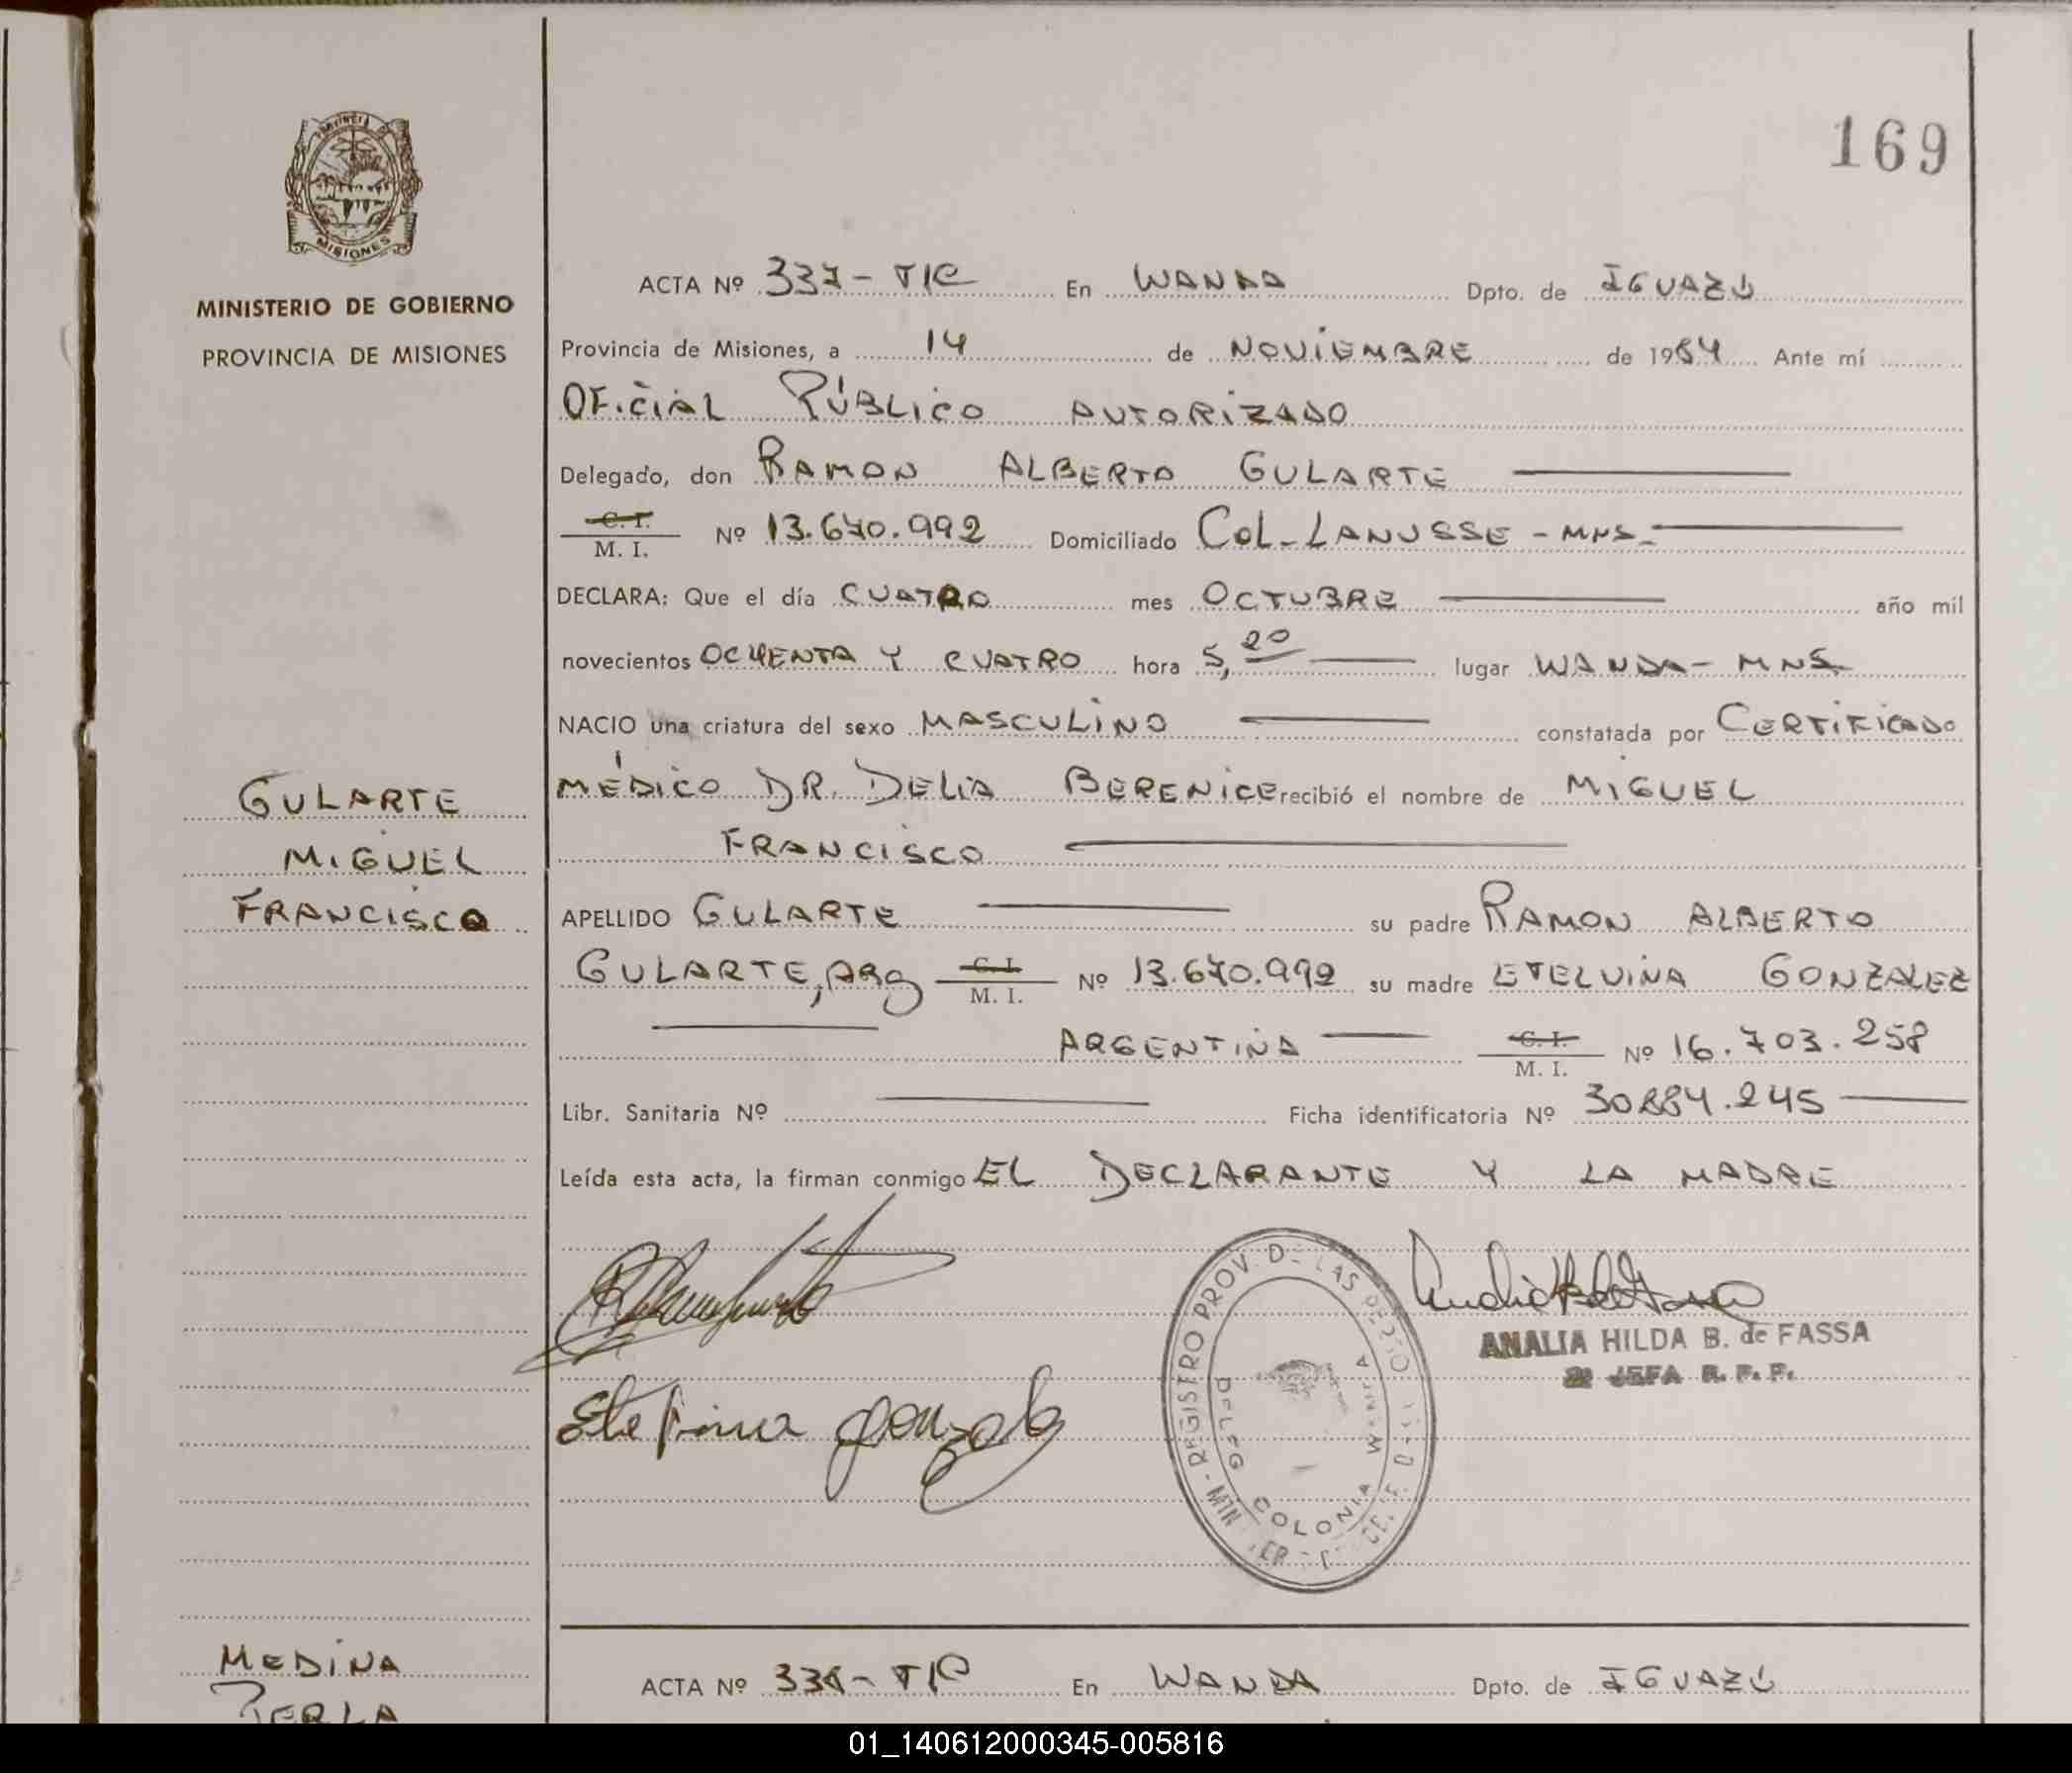 169
PROVINCIA DE
MISIONES
MINISTERIO DE GOBIERNO
PROVINCIA DE MISIONES
GULARTE
MIGUEL
FRANCISCO
ACTA Nº 337- TIC En WANDA Dpto. de IGUAZÚ
Provincia de Misiones, a 14 de NOVIEMBRE de 1984 Ante mí
OFICIAL PÚBLICO AUTORIZADO
Delegado, don RAMON ALBERTO GULARTE
C. I.
M. I. Nº 13.670.992 Domiciliado COL-LANUSSE - MNS-
DECLARA: Que el día CUATRO mes OCTUBRE año mil
novecientos OCHENTA Y CUATRO hora 5,20 lugar WANDA- MNS
NACIO una criatura del sexo MASCULINO constatada por CERTIFICADO
MÉDICO DR. DELIA BERENICE recibió el nombre de MIGUEL
FRANCISCO
APELLIDO GULARTE su padre RAMON ALBERTO
GULARTE, ARG C. I. M. I. Nº 13.670.992 su madre ETELVINA GONZALEZ
ARGENTINA C. I. M. I. Nº 16.703.258
Libr. Sanitaria Nº Ficha identificatoria Nº 30884.245
Leída esta acta, la firman conmigo EL DECLARANTE Y LA MADRE
ANALIA HILDA B. de FASSA
2ª JEFA R. P. P.
Etelvina Gonzalez
REGISTRO PROV. DE LAS PERSONAS
DELEG COLONIA WANDA
MEDINA
PERLA
ACTA Nº 338- TIC En WANDA Dpto. de IGUAZÚ
01_140612000345-005816